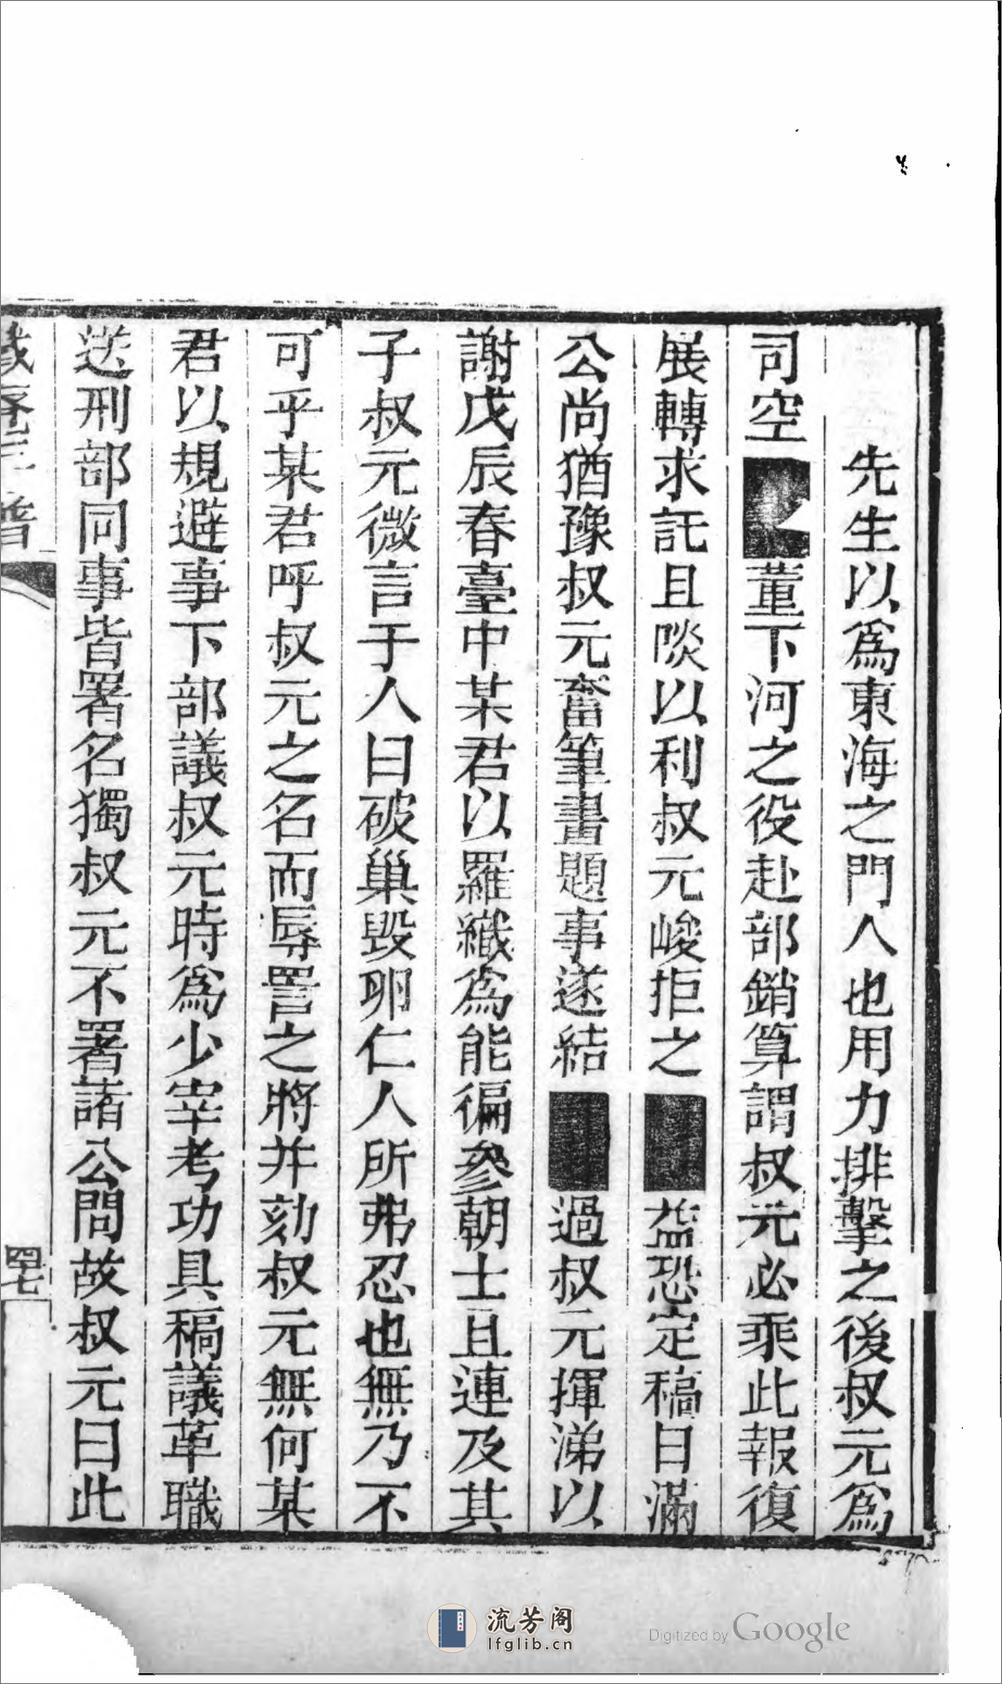 先生以爲東海之門人也用力排擊之後叔元爲
司空董下河之役赴部銷算謂叔元必乘此報復
展轉求託且啖以利叔元峻拒之益恐定稿日滿
公尚猶豫叔元奮筆畫題事遂結過叔元揮涕以
謝戊辰春臺中某君以羅織爲能徧參朝士且連及其
子叔元微言于人曰破巢毀卵仁人所弗忍也無乃不
可乎某君呼叔元之名而辱詈之將并劾叔元無何某
君以規避事下部議叔元時爲少宰考功具稿議革職
送刑部同事皆署名獨叔元不署諸公問故叔元曰此
年譜
四七
流芳阁
lfglib.cn
Digitized by Google